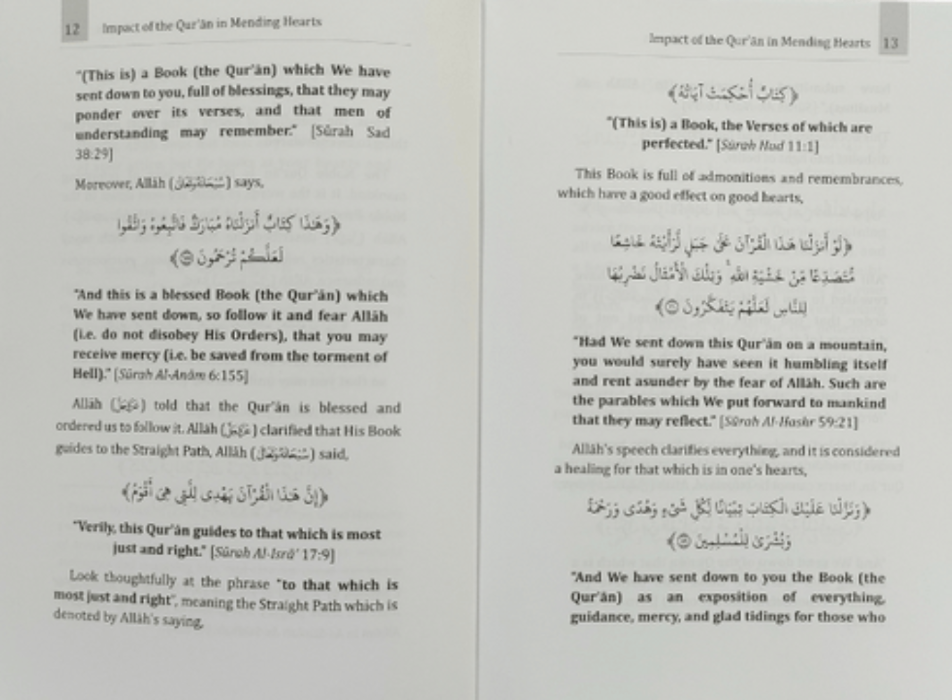 12 Impact of the Qur'ān in Mending Hearts
"(This is) a Book (the Qur'ān) which We have
sent down to you, full of blessings, that they may
ponder over its verses, and that men of
understanding may remember." [Sūrah Sad
38:29]
Moreover, Allāh (سُبْحَانَهُ وَتَعَالَى) says,
﴿وَهَٰذَا كِتَابٌ أَنزَلْنَاهُ مُبَارَكٌ فَاتَّبِعُوهُ وَاتَّقُوا
لَعَلَّكُمْ تُرْحَمُونَ ﴾
"And this is a blessed Book (the Qur'ān) which
We have sent down, so follow it and fear Allāh
(i.e. do not disobey His Orders), that you may
receive mercy (i.e. be saved from the torment of
Hell)." [Sūrah Al-Anām 6:155]
Allāh (عَزَّوَجَلَّ) told that the Qur'ān is blessed and
ordered us to follow it. Allāh (عَزَّوَجَلَّ) clarified that His Book
guides to the Straight Path, Allāh (سُبْحَانَهُ وَتَعَالَى) said,
﴿إِنَّ هَٰذَا الْقُرْآنَ يَهْدِي لِلَّتِي هِيَ أَقْوَمُ﴾
"Verily, this Qur'ān guides to that which is most
just and right." [Sūrah Al-Isrā' 17:9]
Look thoughtfully at the phrase "to that which is
most just and right", meaning the Straight Path which is
denoted by Allāh's saying,
Impact of the Qur'ān in Mending Hearts 13
﴿كِتَابٌ أُحْكِمَتْ آيَاتُهُ﴾
"(This is) a Book, the Verses of which are
perfected." [Sūrah Hud 11:1]
This Book is full of admonitions and remembrances,
which have a good effect on good hearts,
﴿لَوْ أَنزَلْنَا هَٰذَا الْقُرْآنَ عَلَىٰ جَبَلٍ لَّرَأَيْتَهُ خَاشِعًا
مُّتَصَدِّعًا مِّنْ خَشْيَةِ اللَّهِ ۚ وَتِلْكَ الْأَمْثَالُ نَضْرِبُهَا
لِلنَّاسِ لَعَلَّهُمْ يَتَفَكَّرُونَ ﴾
"Had We sent down this Qur'ān on a mountain,
you would surely have seen it humbling itself
and rent asunder by the fear of Allāh. Such are
the parables which We put forward to mankind
that they may reflect." [Sūrah Al-Hashr 59:21]
Allāh's speech clarifies everything, and it is considered
a healing for that which is in one's hearts,
﴿وَنَزَّلْنَا عَلَيْكَ الْكِتَابَ تِبْيَانًا لِّكُلِّ شَيْءٍ وَهُدًى وَرَحْمَةً
وَبُشْرَىٰ لِلْمُسْلِمِينَ ﴾
"And We have sent down to you the Book (the
Qur'ān) as an exposition of everything,
guidance, mercy, and glad tidings for those who